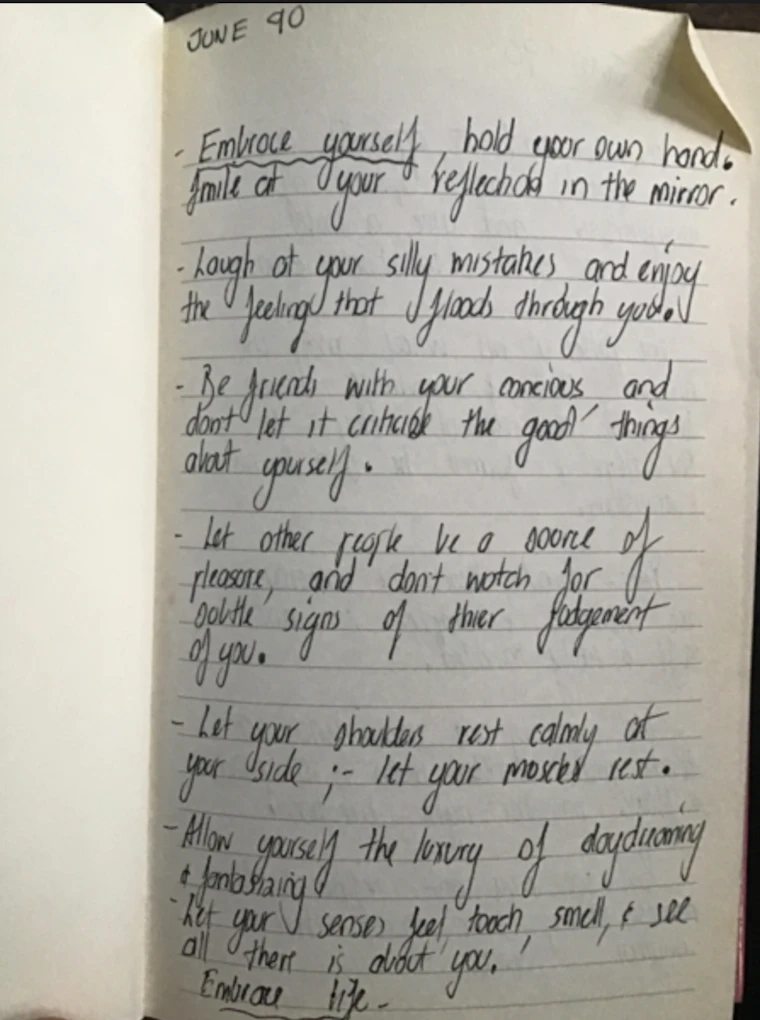 JUNE 90
- Embrace yourself, hold your own hand.
Smile at your reflection in the mirror.
- Laugh at your silly mistakes and enjoy
the feeling that floods through you.
- Be friends with your concious and
don't let it criticise the good things
about yourself.
- Let other people be a source of
pleasure, and don't watch for
subtle signs of thier judgement
of you.
- Let your shoulders rest calmly at
your side ;- let your muscles rest.
- Allow yourself the luxury of daydreaming
& fantasizing
- Let your senses feel, touch, smell, & see
all there is about you.
Embrace life -